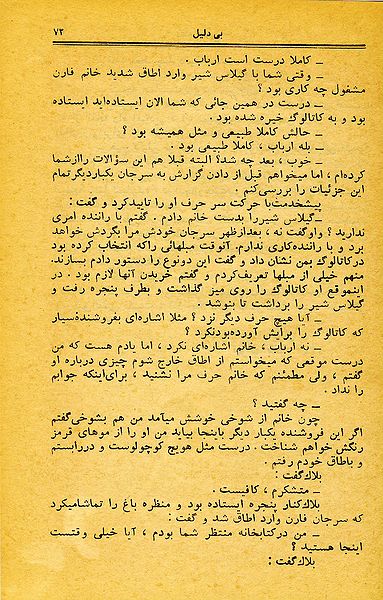 بی دلیل ۷۳
ـ کاملا درست است ارباب .
ـ وقتی شما با گیلاس شیر وارد اطاق شدید خانم فارن
مشغول چه کاری بود ؟
ـ درست در همین جائی که شما الان ایستاده‌اید ایستاده
بود و به کاتالوگ خیره شده بود .
ـ حالش کاملا طبیعی و مثل همیشه بود ؟
ـ بله ارباب ، کاملا طبیعی بود .
ـ خوب ، بعد چه شد؟ البته قبلا هم این سؤالات را از شما
کرده‌ام ، اما میخواهم قبل از دادن گزارش به سرجان یکبار دیگر تمام
این جزئیات را بررسی کنم .
پیشخدمت با حرکت سر حرف او را تایید کرد و گفت :
ـ گیلاس شیر را بدست خانم دادم . گفتم با راننده امری
ندارید ؟ و او گفت نه ، بعداز ظهر سرجان خودش مرا بگردش خواهد
برد و با راننده کاری ندارم. آنوقت مبلهائی را که انتخاب کرده بود
در کاتالوگ بمن نشان داد و گفت این دو نوع را دستور دادم بسازند.
منهم خیلی از مبلها تعریف کردم و گفتم خریدن آنها لازم بود . در
اینموقع او کاتالوگ را روی میز گذاشت و بطرف پنجره رفت و
گیلاس شیر را برداشت تا بنوشد .
ـ آیا هیچ حرف دیگر نزد ؟ مثلا اشاره‌ای بفروشنده سیار
که کاتالوگ را برایش آورده بود نکرد ؟
ـ نه ارباب ، خانم اشاره‌ای نکرد ، اما یادم هست که من
درست موقعی که میخواستم از اطاق خارج شوم چیزی درباره او
گفتم ، ولی مطمئنم که خانم حرف مرا نشنید ، برای اینکه جوابم
را نداد .
ـ چه گفتید ؟
چون خانم از شوخی خوشش میآمد من هم بشوخی گفتم
اگر این فروشنده یکبار دیگر باینجا بیاید من او را از موهای قرمز
رنگش خواهم شناخت . درست مثل هویج کوچولوست و در را بستم
و باطاق خودم رفتم .
بلاک گفت :
ـ متشکرم ، کافیست .
بلاک کنار پنجره ایستاده بود و منظره باغ را تماشا میکرد
که سرجان فارن وارد اطاق شد و گفت :
ـ من در کتابخانه منتظر شما بودم ، آیا خیلی وقتست
اینجا هستید ؟
بلاک گفت :